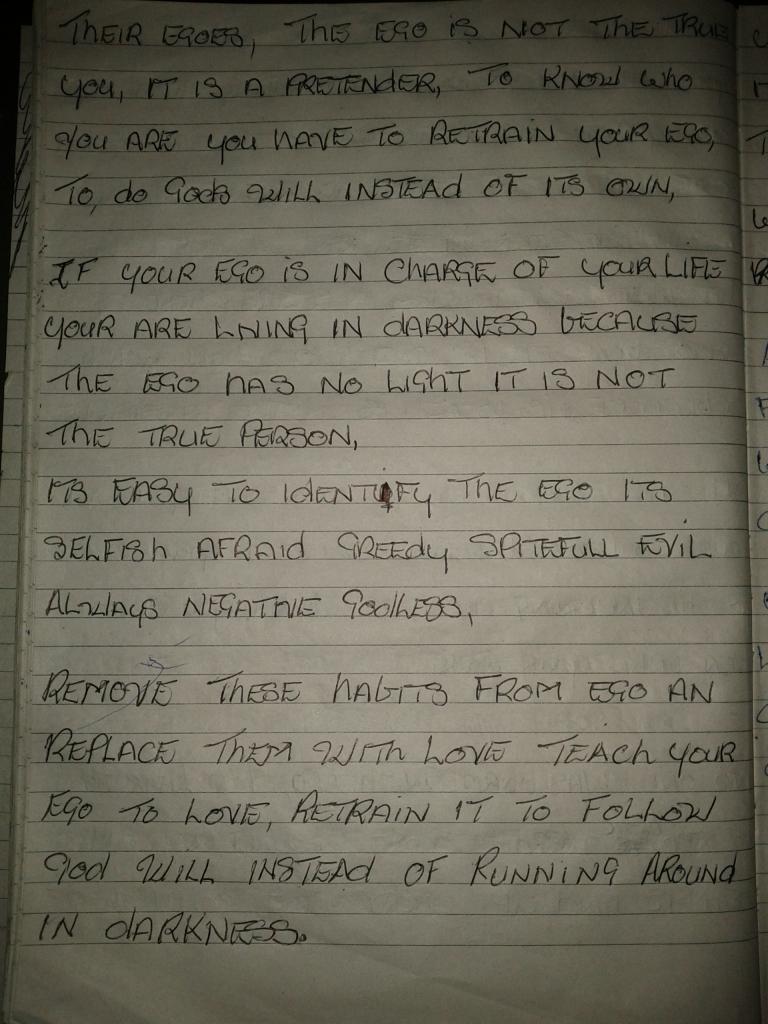 THEIR EGOES, THE EGO IS NOT THE TRUE
YOU, IT IS A PRETENDER, TO KNOW WHO
YOU ARE YOU HAVE TO RETRAIN YOUR EGO,
TO, do GODS WILL INSTEAD OF ITS OWN,
IF YOUR EGO IS IN CHARGE OF YOUR LIFE
YOUR ARE LIVING IN DARKNESS BECAUSE
THE EGO HAS NO LIGHT IT IS NOT
THE TRUE PERSON,
ITS EASY TO IDENTIFY THE EGO ITS
SELFISH AFRAID GREEDY SPITEFULL EVIL
ALWAYS NEGATIVE GODLESS,
REMOVE THESE HABITS FROM EGO AN
REPLACE THEM WITH LOVE TEACH YOUR
EGO TO LOVE, RETRAIN IT TO FOLLOW
GOD WILL INSTEAD OF RUNNING AROUND
IN DARKNESS.